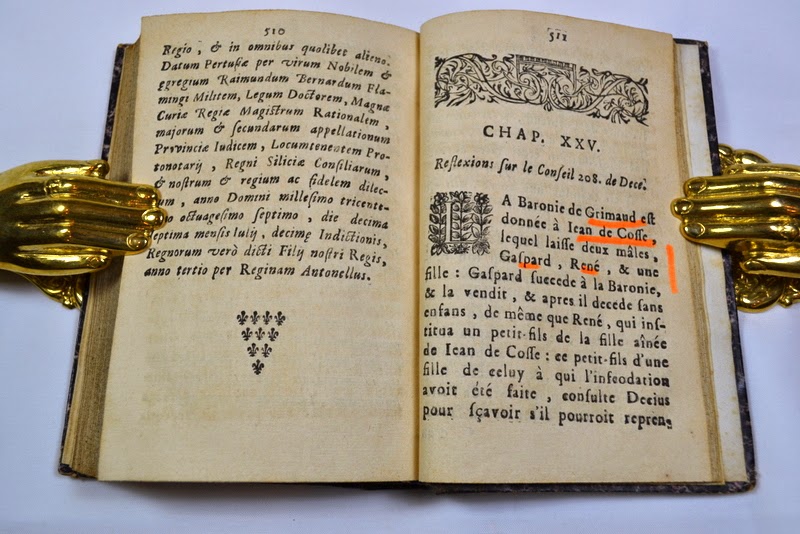 510
Regio, & in omnibus quolibet alieno.
Datum Pertusiæ per virum Nobilem &
ggregium Raimundum Bernardum Fla-
mingi Militem, Legum Doctorem, Magnæ
Curiæ Regiæ Magistrum Rationalem,
majorum & secundarum appellationum
Prvinciæ Iudicem, Locumtenentem Pro-
tonotarij, Regni Siliciæ Consiliarum,
& nostrum & regium ac fidelem dilec-
um, anno Domini millesimo tricente-
mo octuagesimo septimo, die decima
eptima mensis Iulij, decimę Indictionis,
Regnorum verò dicti Filij nostri Regis,
anno tertio per Reginam Antonellus.
511
CHAP. XXV.
Reflexions sur le Conseil 208. de Dece.
LA Baronie de Grimaud est
donnée à Iean de Cosse,
lequel laisse deux mâles,
Gaspard, René, & une
fille : Gaspard succede à la Baronie,
& la vendit, & apres il decede sans
enfans, de même que René, qui ins-
titua un petit-fils de la fille aînée
de Iean de Cosse : ce petit-fils d'une
fille de celuy à qui l'infeodation
avoit été faite, consulte Decius
pour sçavoir s'il pourroit repren-